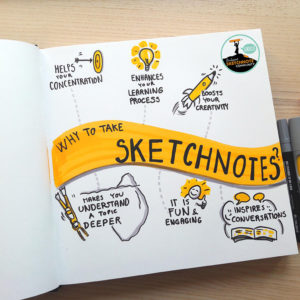 HELPS
YOUR
CONCENTRATION
ENHANCES
YOUR
LEARNING
PROCESS
BOOSTS
YOUR
CREATIVITY
WHY TO TAKE
SKETCHNOTES?
MAKES YOU
UNDERSTAND
A TOPIC
DEEPER
IT IS
FUN &
ENGAGING
INSPIRES
CONVERSATIONS
SKETCHNOTE